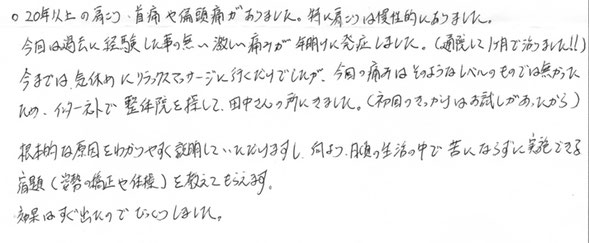 ○ 20年以上の肩こり・首痛や偏頭痛がありました。特に肩こりは慢性的にありました。
今回は過去に経験した事の無い激しい痛みが年明けに発症しました。(通院して1ヶ月で治りました!!)
今までは気休めにリラックスマッサージに行くだけでしたが、今回の痛みはそのようなレベルのものでは無かった
ため、インターネットで整体院を探して、田中さんの所にきました。(初回のきっかけはお試しがあったから)
根本的な原因をわかりやすく説明していただけますし、何より、日頃の生活の中で苦にならずに実施できる
宿題(姿勢の矯正や体操)を教えてもらえます。
効果はすぐ出たのでびっくりしました。